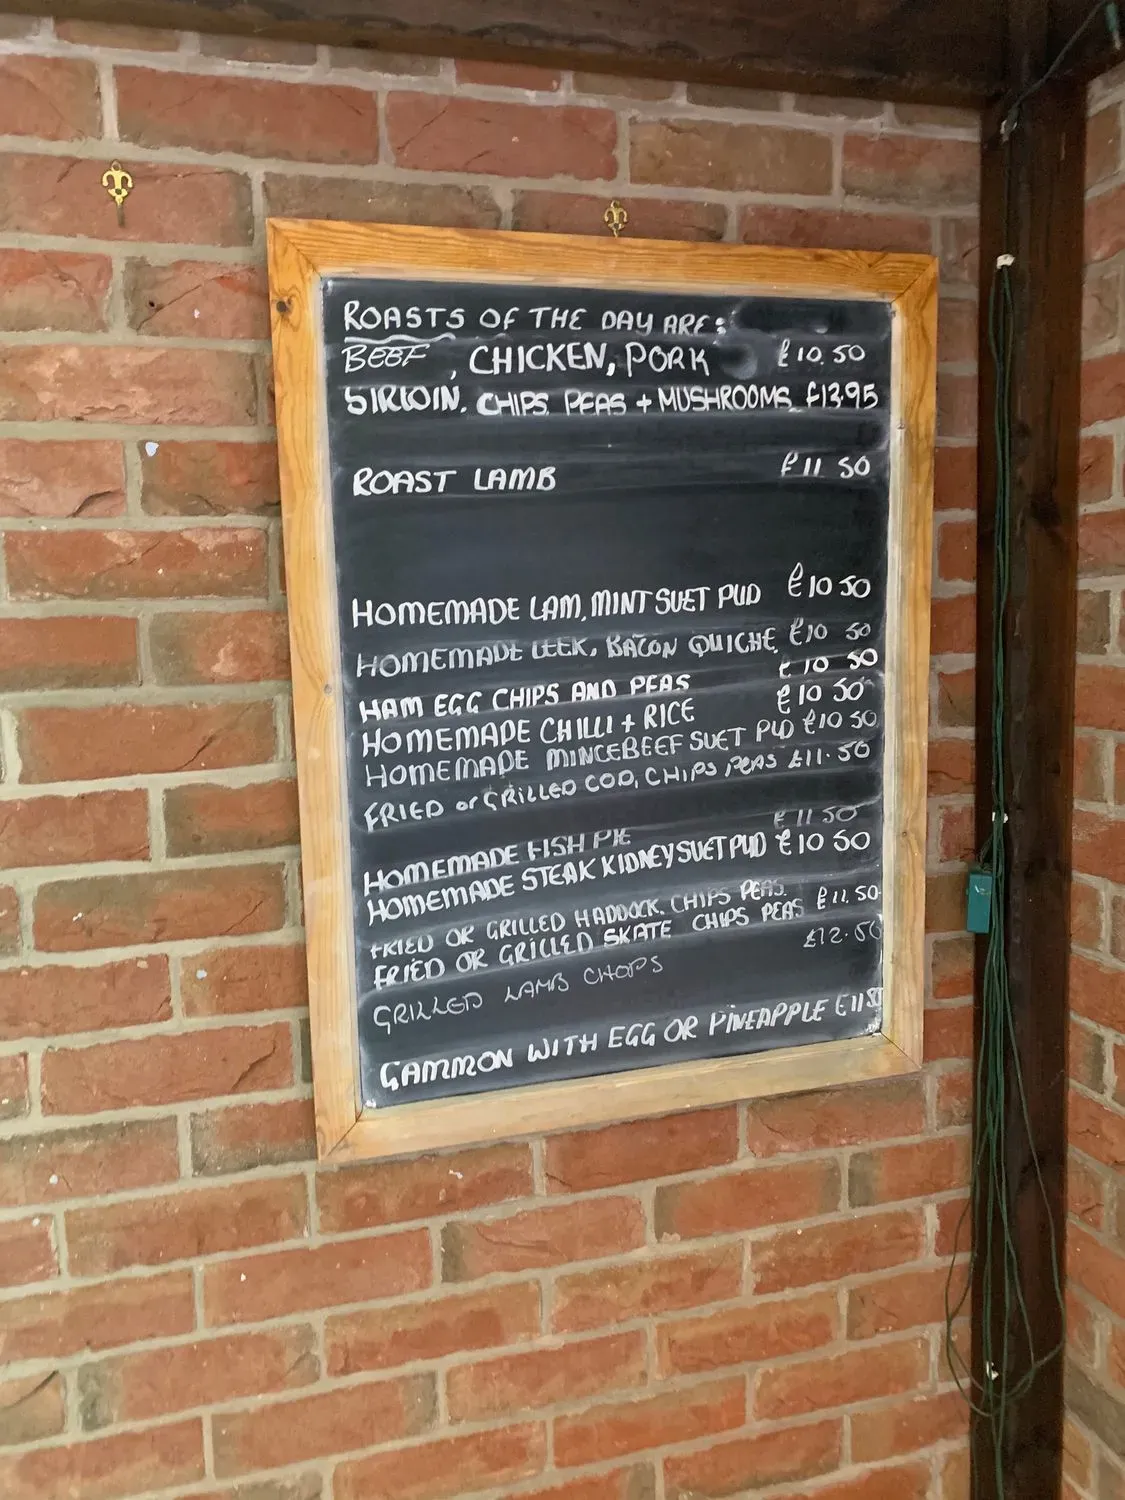 ROASTS OF THE DAY ARE:
BEEF, CHICKEN, PORK £10.50
SIRLOIN. CHIPS. PEAS + MUSHROOMS £13.95
ROAST LAMB £11 50
HOMEMADE LAM, MINT SUET PUD £10 50
HOMEMADE LEEK, BACON QUICHE £10 50
HAM EGG CHIPS AND PEAS £10 50
HOMEMADE CHILLI + RICE £10 50
HOMEMADE MINCEBEEF SUET PUD £10 50
FRIED or GRILLED COD, CHIPS PEAS £11.50
HOMEMADE FISH PIE £11 50
HOMEMADE STEAK KIDNEY SUET PUD £10 50
FRIED OR GRILLED HADDOCK. CHIPS PEAS. £11.50
FRIED OR GRILLED SKATE CHIPS PEAS £12.50
GRILLED LAMB CHOPS
GAMMON WITH EGG OR PINEAPPLE £11 50